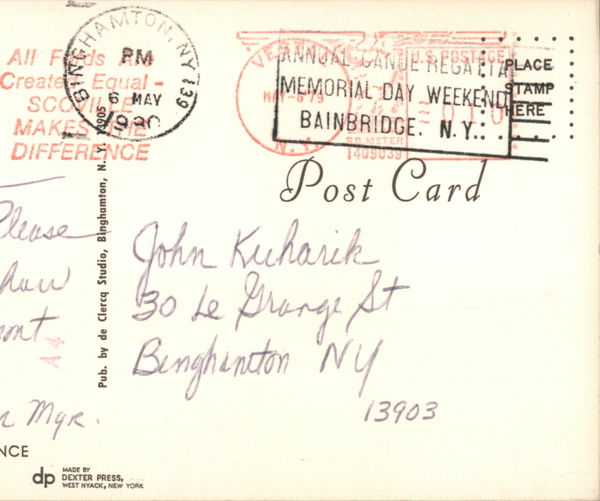 All Foods Are
Created Equal -
SCOVILLE
MAKES THE
DIFFERENCE
BINGHAMTON, NY 139
PM
6 MAY
1980
MAY-6'79
N.Y.
U.S. POSTAGE
PB METER
1409039
ANNUAL CANOE REGATTA
MEMORIAL DAY WEEKEND
BAINBRIDGE, N.Y.
PLACE
STAMP
HERE
Post Card
Please
mont
A4
Mgr.
NCE
Pub. by de Clercq Studio, Binghamton, N. Y. 13905
John Kuharik
30 Le Grange St
Binghamton NY
13903
dp
MADE BY
DEXTER PRESS,
WEST NYACK, NEW YORK